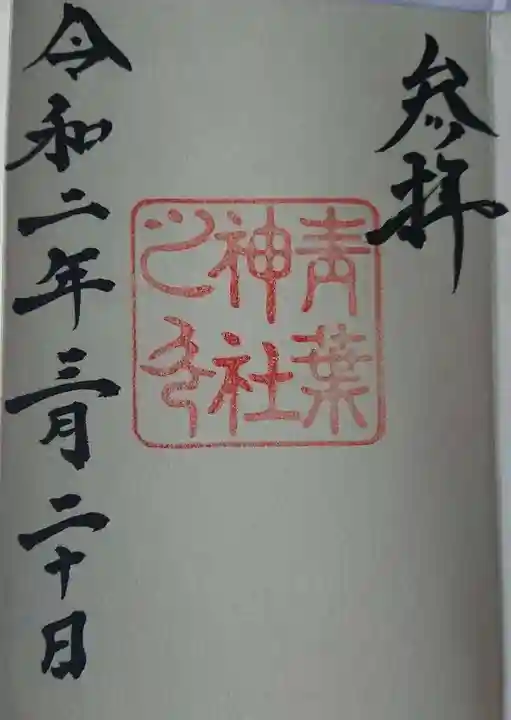 参拝
青葉
神社
之印
令和二年三月二十日